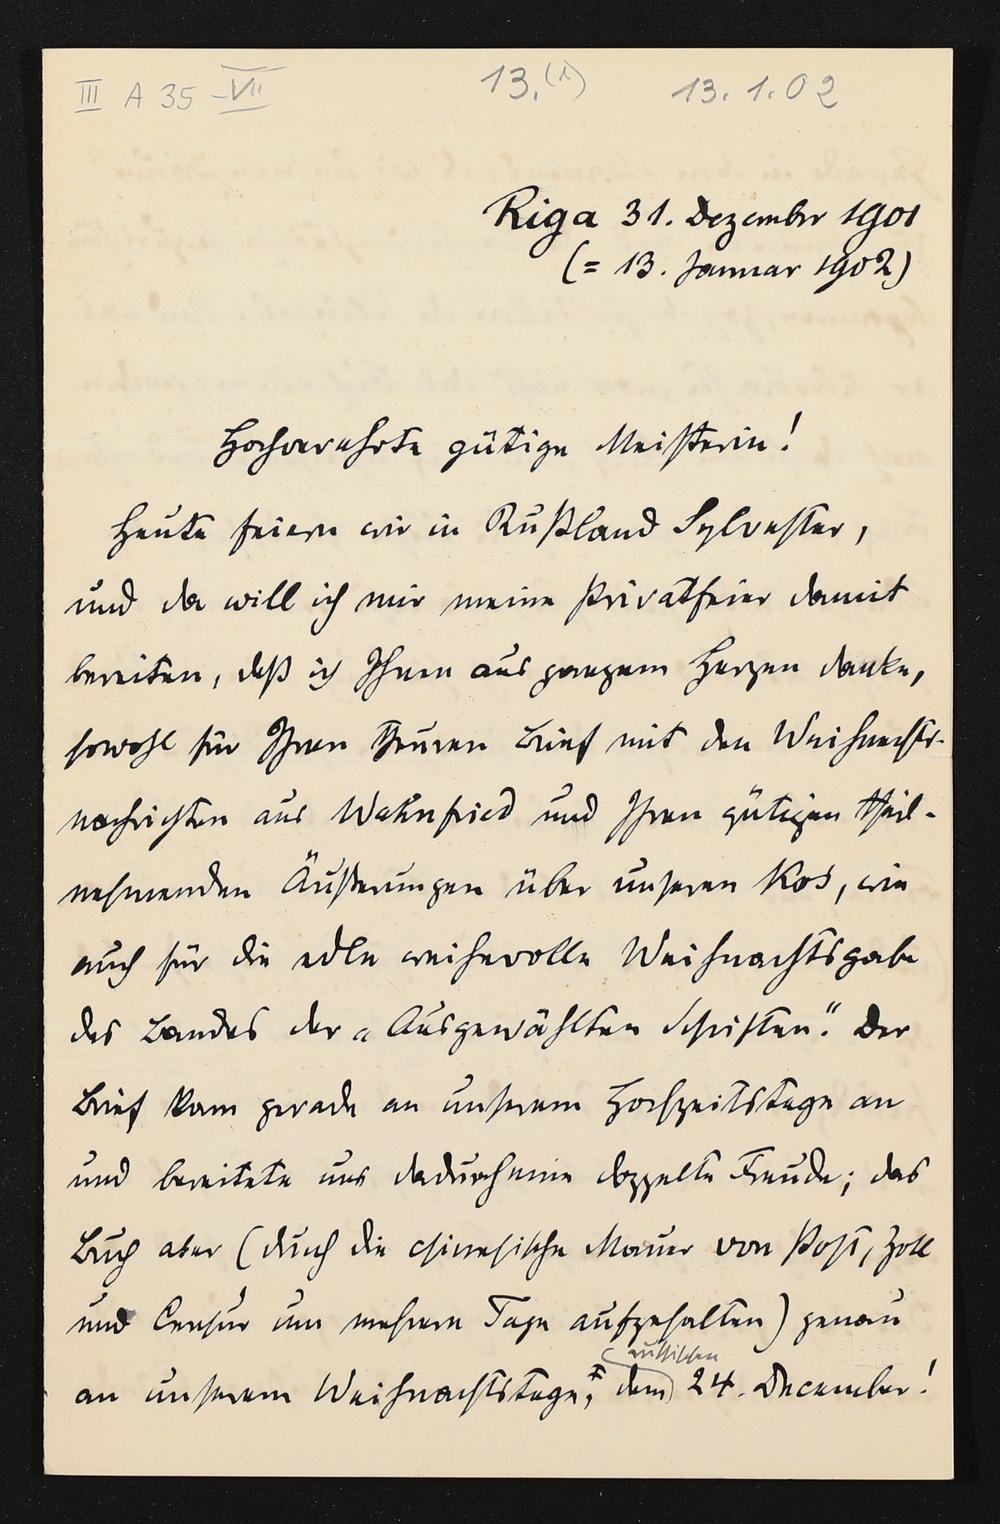 III A 35 - VII 13.(1) 13.1.02
Riga 31. Dezember 1901
(= 13. Januar 1902)
Hochverehrte gütige Meisterin!
Heute feiern wir in Rußland Sylvester,
und da will ich mir meine Privatfeier damit
bereiten, daß ich Ihnen aus ganzem Herzen danke,
sowohl für Ihren theuren Brief mit den Weihnachts-
nachrichten aus Wahnfried und Ihren gütigen theil-
nehmenden Äußerungen über unseren Kos, wie
auch für die edle weihevolle Weihnachtsgabe
des Bandes der „Ausgewählten Schriften". Der
Brief kam gerade an unserem Hochzeitstage an
und bereitete uns dadurch eine doppelte Freude; das
Buch aber (durch die chinesische Mauer von Post, Zoll
und Censur um mehrere Tage aufgehalten) genau
an unserem Weihnachtstage, dem russischen 24. December!